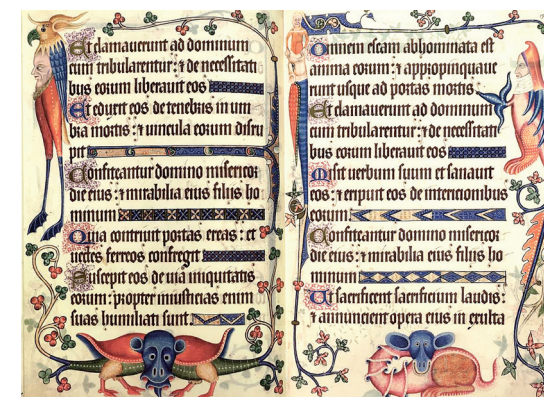 Et clamauerunt ad dominum
cum tribularentur: ⁊ de necessitati
bus eorum liberauit eos
Et eduxit eos de tenebris in um
bra mortis: ⁊ uincula eorum disru
pit
Confiteantur domino misericor
die eius: ⁊ mirabilia eius filiis ho
minum
Quia contriuit portas ereas: et
uectes ferreos confregit
Suscepit eos de uia iniquitatis
eorum: propter iniusticias enim
suas humiliati sunt
Omnem escam abhominata est
anima eorum: ⁊ appropinquaue
runt usque ad portas mortis
Et clamauerunt ad dominum
cum tribularentur: ⁊ de necessitati
bus eorum liberauit eos
Misit uerbum suum et sanauit
eos: ⁊ eripuit eos de interitionibus
eorum
Confiteantur domino misericor
die eius: ⁊ mirabilia eius filiis ho
minum
Et sacrificent sacrificium laudis:
⁊ annuncient opera eius in exulta